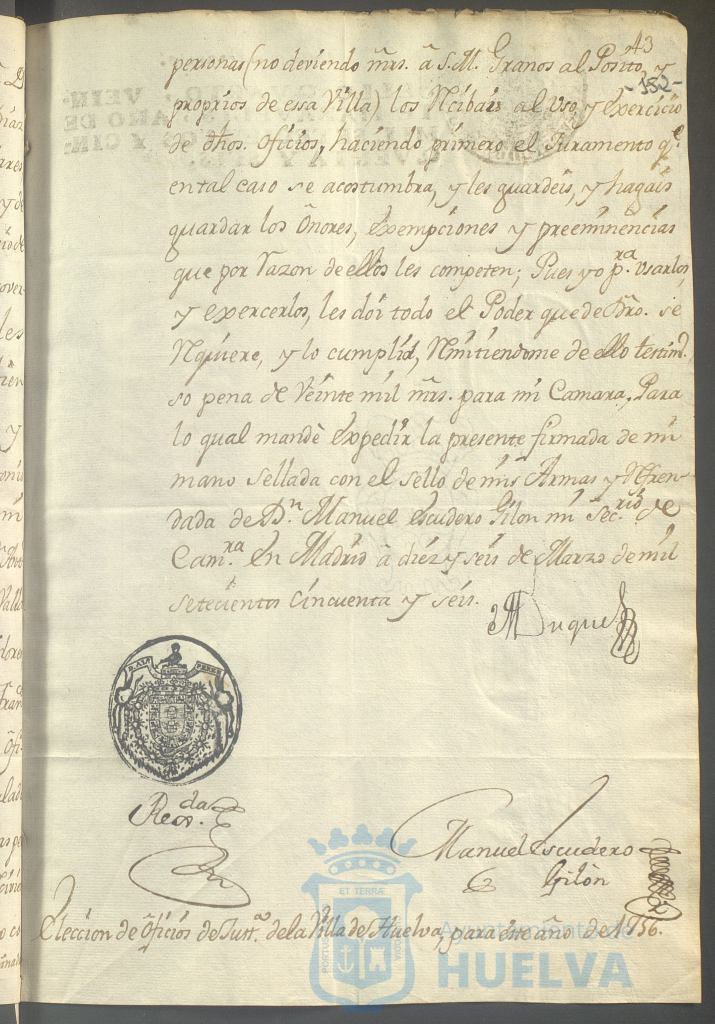 43
-152-
personas (no deviendo mrs. â S. M. Granos al Posito, y
proprios de essa Villa) los Rẽibais al uso, y exercicio
de dhos. Oficios, haciendo primero el Juramento q.e
en tal caso se acostumbra, y les guardeis, y hagais
guardar los Onores, exempciones y preeminencias
que por razon de ellos les competen; Pues yo p.ra usarlos,
y exercerlos, les doi todo el Poder que de Dro. se
requiere, y lo cumplid, remitiendome de ello testim.o
so pena de Veinte mil mrs. para mi Camara. Para
lo qual mandè expedir la presente firmada de mi
mano sellada con el sello de mis Armas y refren-
dada de D.n Manuel Escudero Gilon mi Sec.rio de
Cam.ra En Madrid à diez y seis de Marzo de mil
setecientos Cinquenta y seis.
El Duque
D. ALS PEREZ
Reg.da
Manuel Escudero
Gilòn
Eleccion de Oficios de Just.a de la Villa de Huelva, para este año de 1756.
ET TERRÆ
PORTUS MARIS
CUSTODIA
Ayuntamiento de
HUELVA